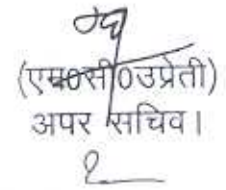 (एम0सी0उप्रेती)
अपर सचिव।